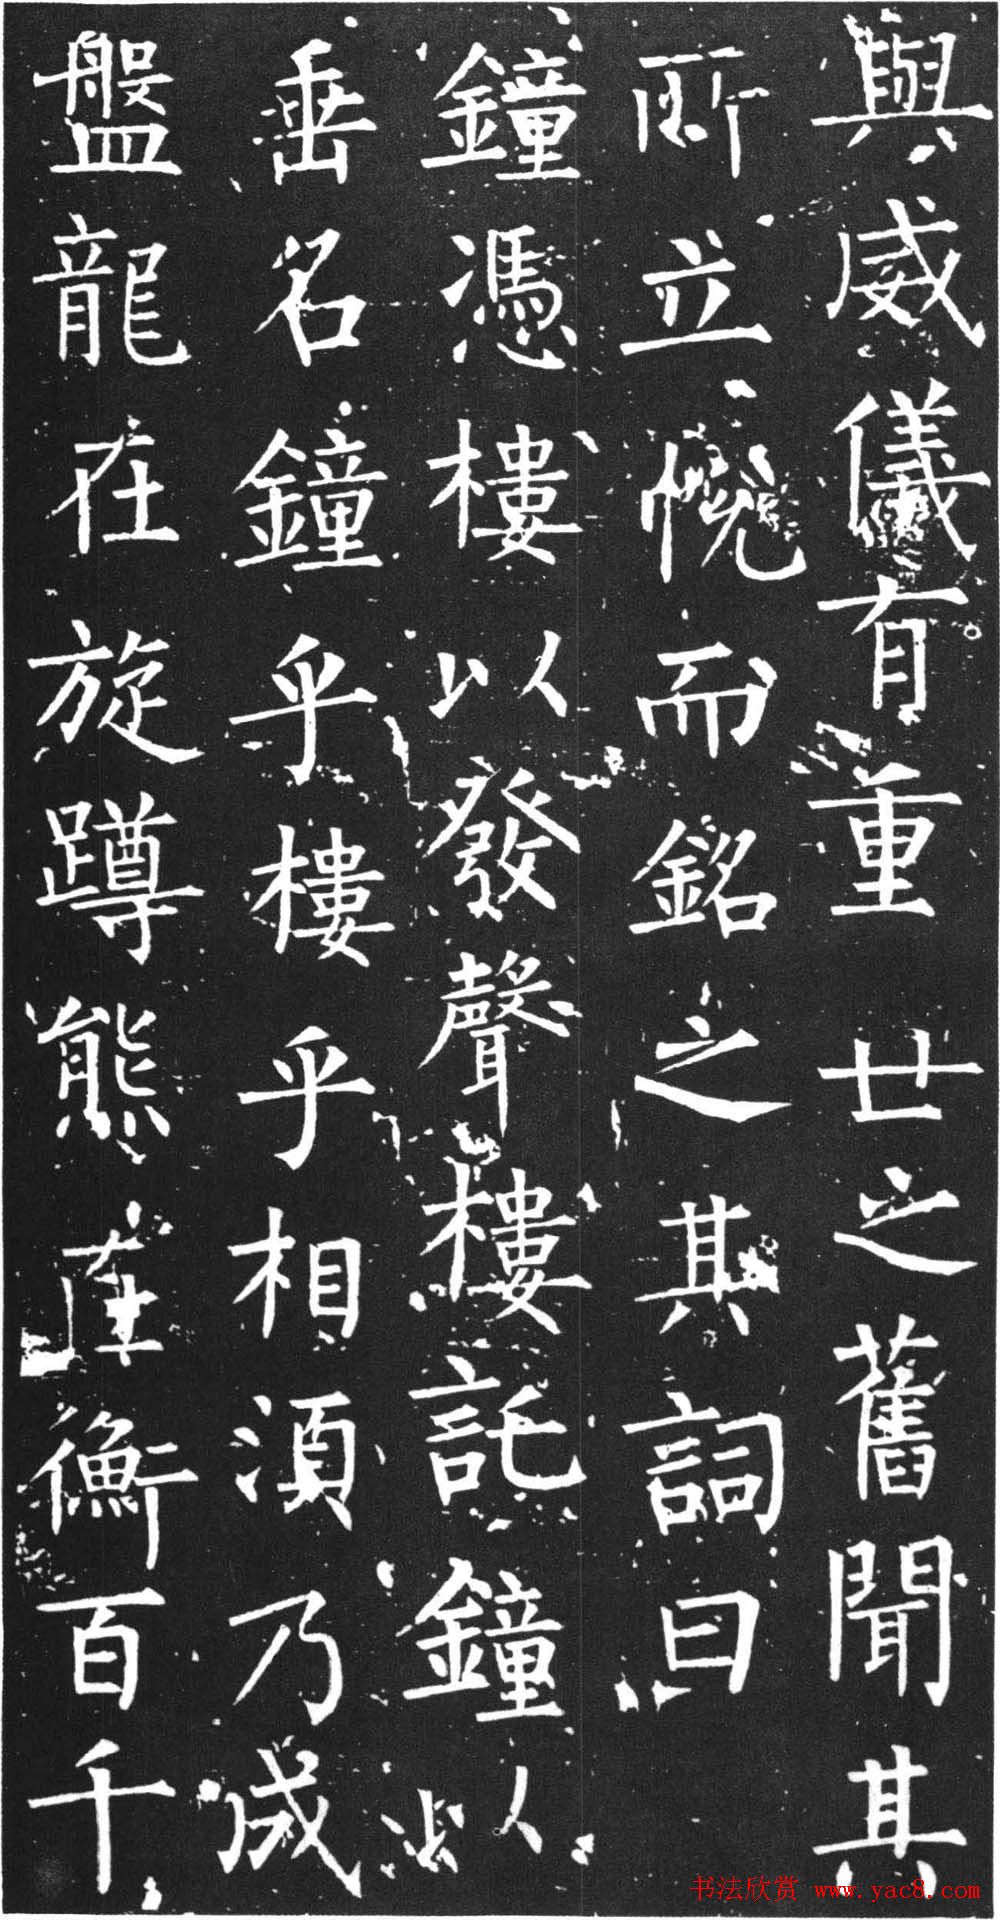 與威儀有重世之舊聞其
所立悅而銘之其詞曰
鐘憑樓以發聲樓託鐘以
垂名鐘乎樓乎相須乃成
盤龍在旋蹲熊在衡百千
书法欣赏 www.yac8.com